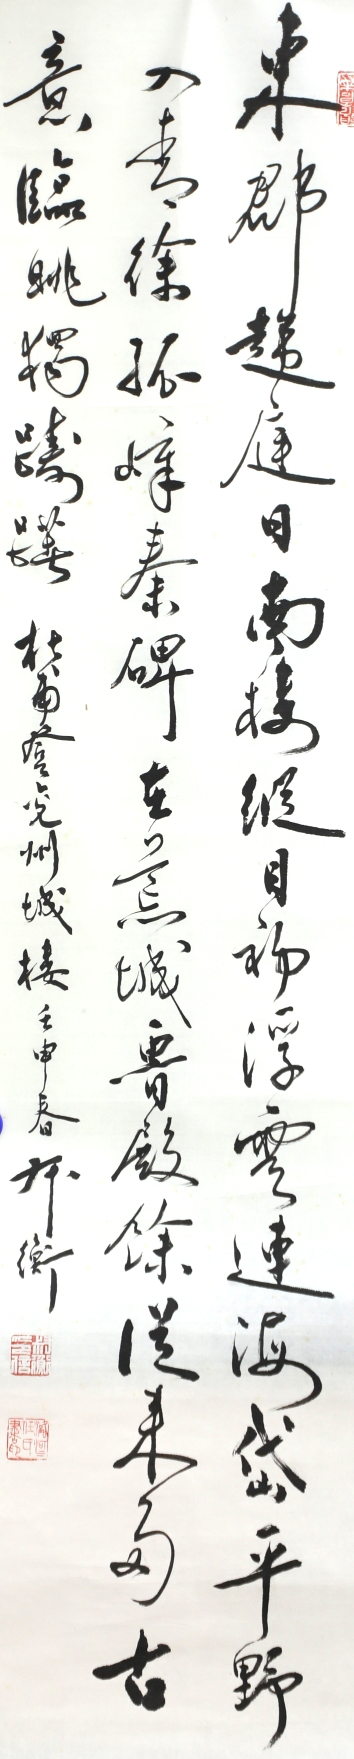 東郡趨庭日南樓縱目初浮雲連海岱平野
入青徐孤嶂秦碑在荒城魯殿餘從來多古
意臨眺獨躊躇 杜甫登兗州城樓 壬申春 衡